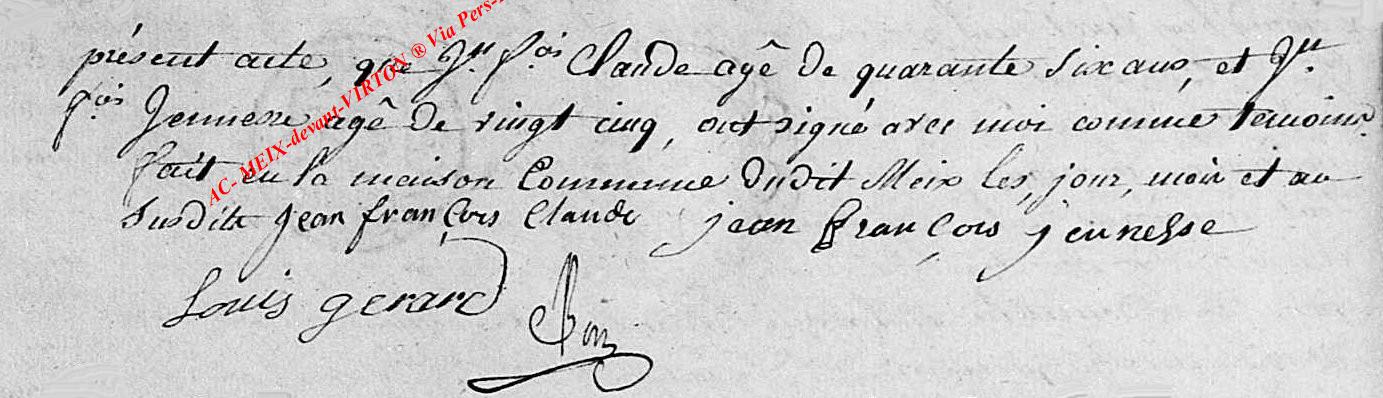 présent acte, que Jn. fois Claude agê de quarante six ans, et Jn.
fois Jeunesse agê de vingt cinq, ont signé avec moi comme temoins.
fait en la maison Commune dudit Meix les, jour, mois et an
Susdits jean françois Claude jean françois jeunesse
Louis gerard
AC- MEIX-devant-VIRTON ® Via Pers-